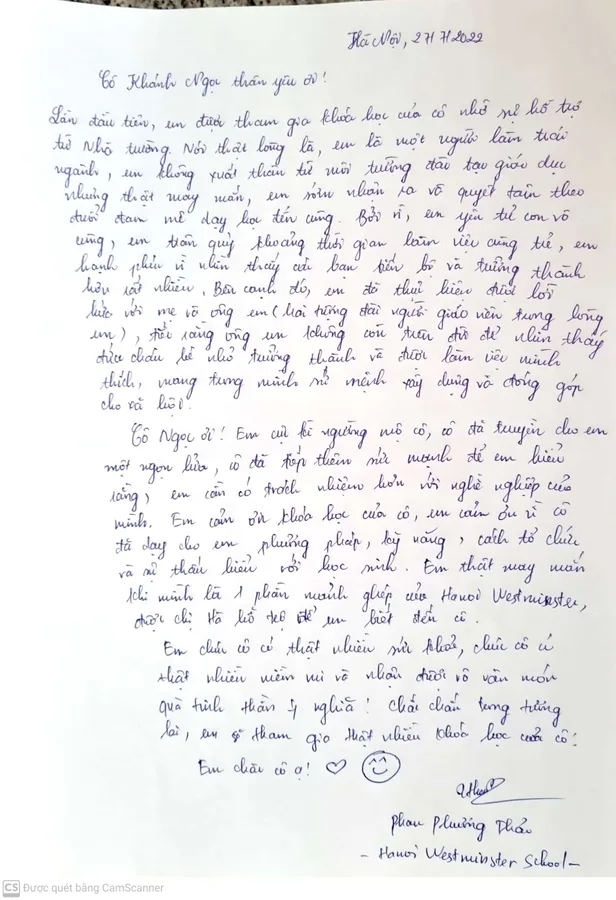 Hà Nội, 27/7/2022
Cô Khánh Ngọc thân yêu ơi!
Lần đầu tiên, em được tham gia khóa học của cô nhờ sự hỗ trợ
từ Nhà trường. Nói thật lòng là, em là một người làm trái
ngành, em không xuất thân từ môi trường đào tạo giáo dục
nhưng thật may mắn, em sớm nhận ra và quyết tâm theo
đuổi đam mê dạy học đến cùng. Bởi vì, em yêu trẻ con vô
cùng, em trân quý khoảng thời gian làm việc cùng trẻ, em
hạnh phúc vì nhìn thấy các bạn tiến bộ và trưởng thành
hơn rất nhiều. Bên cạnh đó, em đã thực hiện được lời
hứa với mẹ và ông em (hai tượng đài người giáo viên trong lòng
em), tiếc rằng ông em không còn trên đời để nhìn thấy
đứa cháu bé nhỏ trưởng thành và được làm việc mình
thích, mang trong mình sứ mệnh xây dựng và đóng góp
cho xã hội.
Cô Ngọc ơi! Em cực kì ngưỡng mộ cô, cô đã truyền cho em
một ngọn lửa, cô đã tiếp thêm sức mạnh để em hiểu
rằng, em cần có trách nhiệm hơn với nghề nghiệp của
mình. Em cảm ơn khóa học của cô, em cảm ơn vì cô
đã dạy cho em phương pháp, kỹ năng, cách tổ chức
và sự thấu hiểu với học sinh. Em thật may mắn
khi mình là 1 phần mảnh ghép của Hanoi Westminster,
được chị Hà hỗ trợ để em biết đến cô.
Em chúc cô có thật nhiều sức khoẻ, chúc cô có
thật nhiều niềm vui và nhận được vô vàn món
quà tinh thần ý nghĩa! Chắc chắn trong tương
lai, em sẽ tham gia thật nhiều khóa học của cô!
Em chào cô ạ!
Phan Phương Thảo
- Hanoi Westminster School -
CS Được quét bằng CamScanner